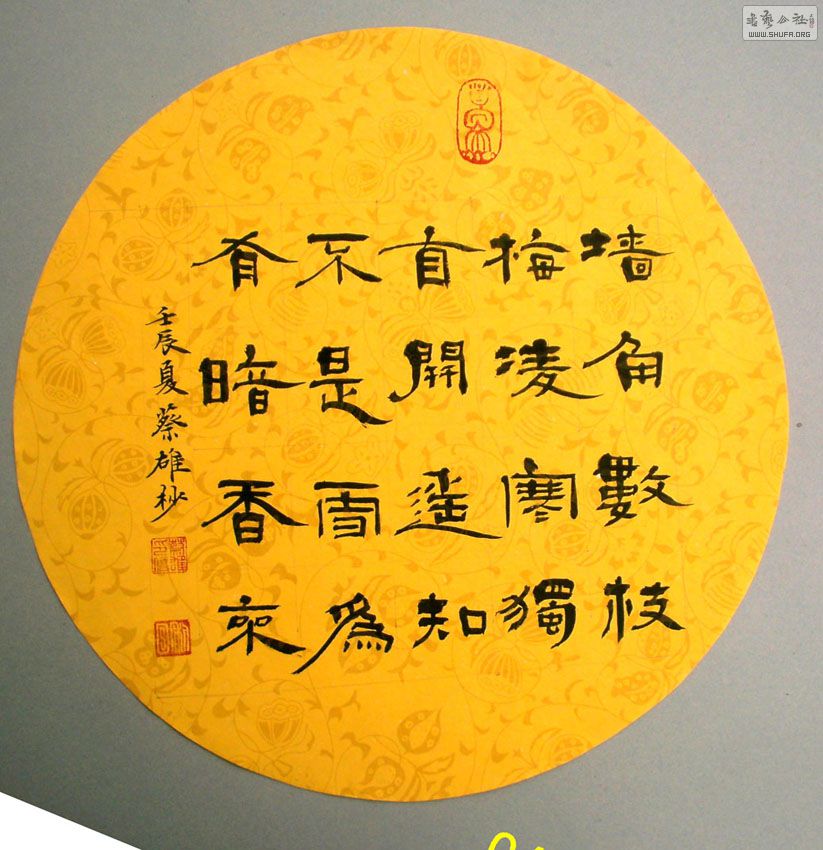 墙角數枝
梅凌寒獨
自開遥知
不是雪爲
有暗香來
壬辰夏蔡雄抄
WWW.SHUFA.ORG